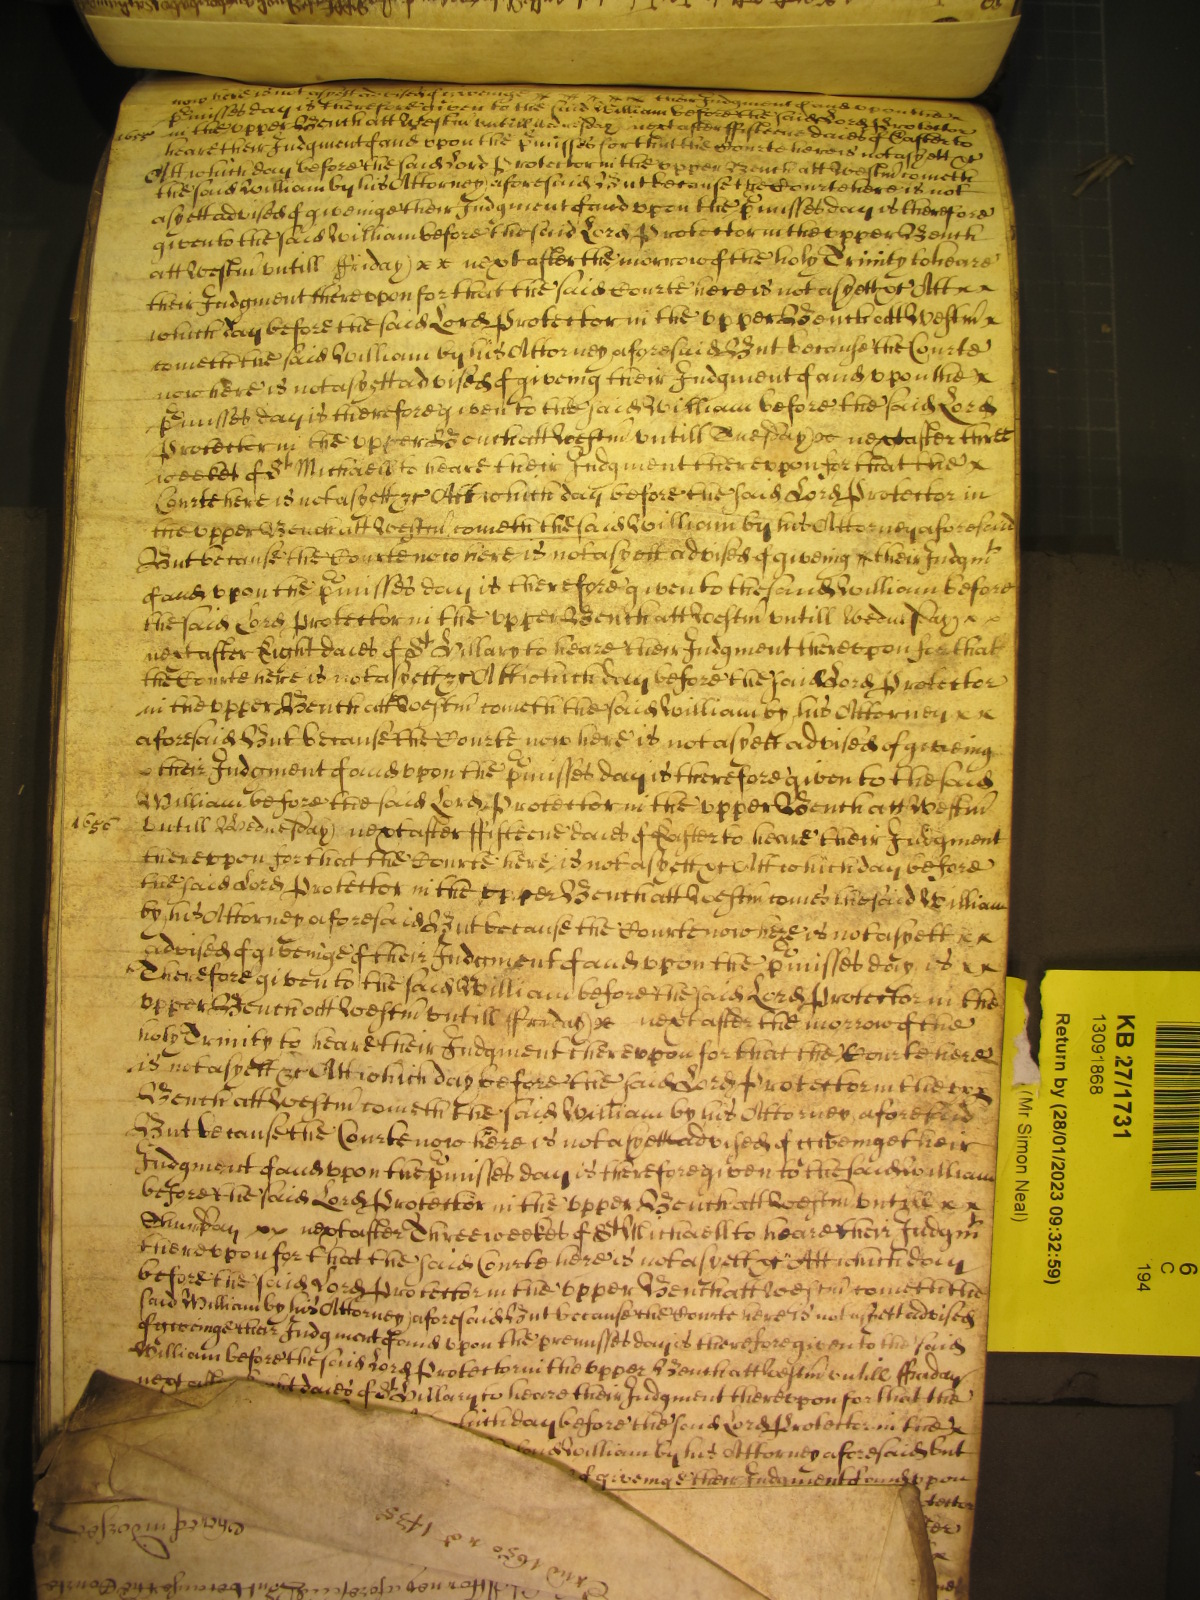 now here is not asyett advised of giveinge x x x x x their Judgment of and upon the x
p̄misses day is therefore given to the said William before the said Lord Protector
1655
in the vpper Bench att Westm̄ vntill Wednesday next after ffifteene daies of Easter to
heare their Judgment of and vpon the p̄misses for that the Courte here is not asyett &c
Att which day before the said Lord Protector in the vpper Bench att Westm̄ cometh
the said William by his Attorney aforesaid But because the Courte here is not
asyett advised of giveinge their Judgment of and vpon the p̄misses day is therefore
given to the said William before the said Lord Protector in the vpper Bench
att Westm̄ vntill ffriday x x next after the morrow of the holy Trinity to heare
their Judgment therevpon for that the said Courte here is not asyett &c Att x x
which day before the said Lord Protector in the vpper Bench att Westm̄ x
cometh the said William by his Attorney aforesaid But because the Courte
now here is not asyett advised of giveing their Judgment of and vpon the x
p̄misses day is therefore given to the said William before the said Lord
Protector in the vpper Bench att Westm̄ vntill Tuesday x next after three
weekes of St Michaell to heare their Judgment therevpon for that the x
Courte here is not asyett &c Att which day before the said Lord Protector in
the vpper Bench att Westm̄ cometh the said William by his Attorney aforesaid
But because the Courte now here is not asyett advised of giveing x their Judgmt
of and vpon the p̄misses day is therefore given to the said William before
the said Lord Protector in the vpper Bench att Westm̄ vntill Wednesday x x
next after Eight daies of St Hillary to heare their Judgment therevpon for that
the Courte here is not asyett &c Att which day before the said Lord Protector
in the vpper Bench att Westm̄ cometh the said William by his Attorney x x
aforesaid But because the Courte now here is not asyett advised of giveing
their Judgment of and vpon the p̄misses day is therefore given to the said
William before the said Lord Protector in the vpper Bench att Westm̄
1656
vntill Wednesday next after ffifteene daies of Easter to heare their Judgment
therevpon for that the Courte here is not asyett &c Att which day before
the said Lord Protector in the vpper Bench att Westm̄ comes the said William
by his Attorney aforesaid But because the Courte now here is not asyett x x
advised of giveinge of their Judgment of and vpon the p̄misses day is x x
Therefore given to the said William before the said Lord Protector in the
vpper Bench att Westm̄ vntill ffriday x next after the morrow of the
holy Trinity to heare their Judgment therevpon for that the Courte here
is not asyett &c Att which day before the said Lord Protector in the vpp̄
Bench att Westm̄ cometh the said William by his Attorney aforesaid
But because the Courte now here is not asyett advised of giveinge their
Judgment of and vpon the p̄misses day is therefore given to the said William
before the said Lord Protector in the vpper Bench att Westm̄ vntill x x
Thursday xx next after Three weekes of St Michaell to heare their Judgm̄t
therevpon for that the said Courte here is not asyett &c Att which day
before the said Lord Protector in the vpper Bench att Westm̄ cometh the
said William by his Attorney aforesaid But because the Courte here is not asyett advised
of giveinge their Judgment of and vpon the premisses day is therefore given to the said
William before the said Lord Protector in the vpper Bench att Westm̄ vntill ffriday
next after daies of St Hillary to heare their Judgment therevpon for that the
which day before the said Lord Protector in the x
said William by his Attorney aforesaid But
of giveinge their Judgment of and vpon
KB 27/1731
13091868
Return by (28/01/2023 09:32:59)
(Mr Simon Neal)
6
C
194